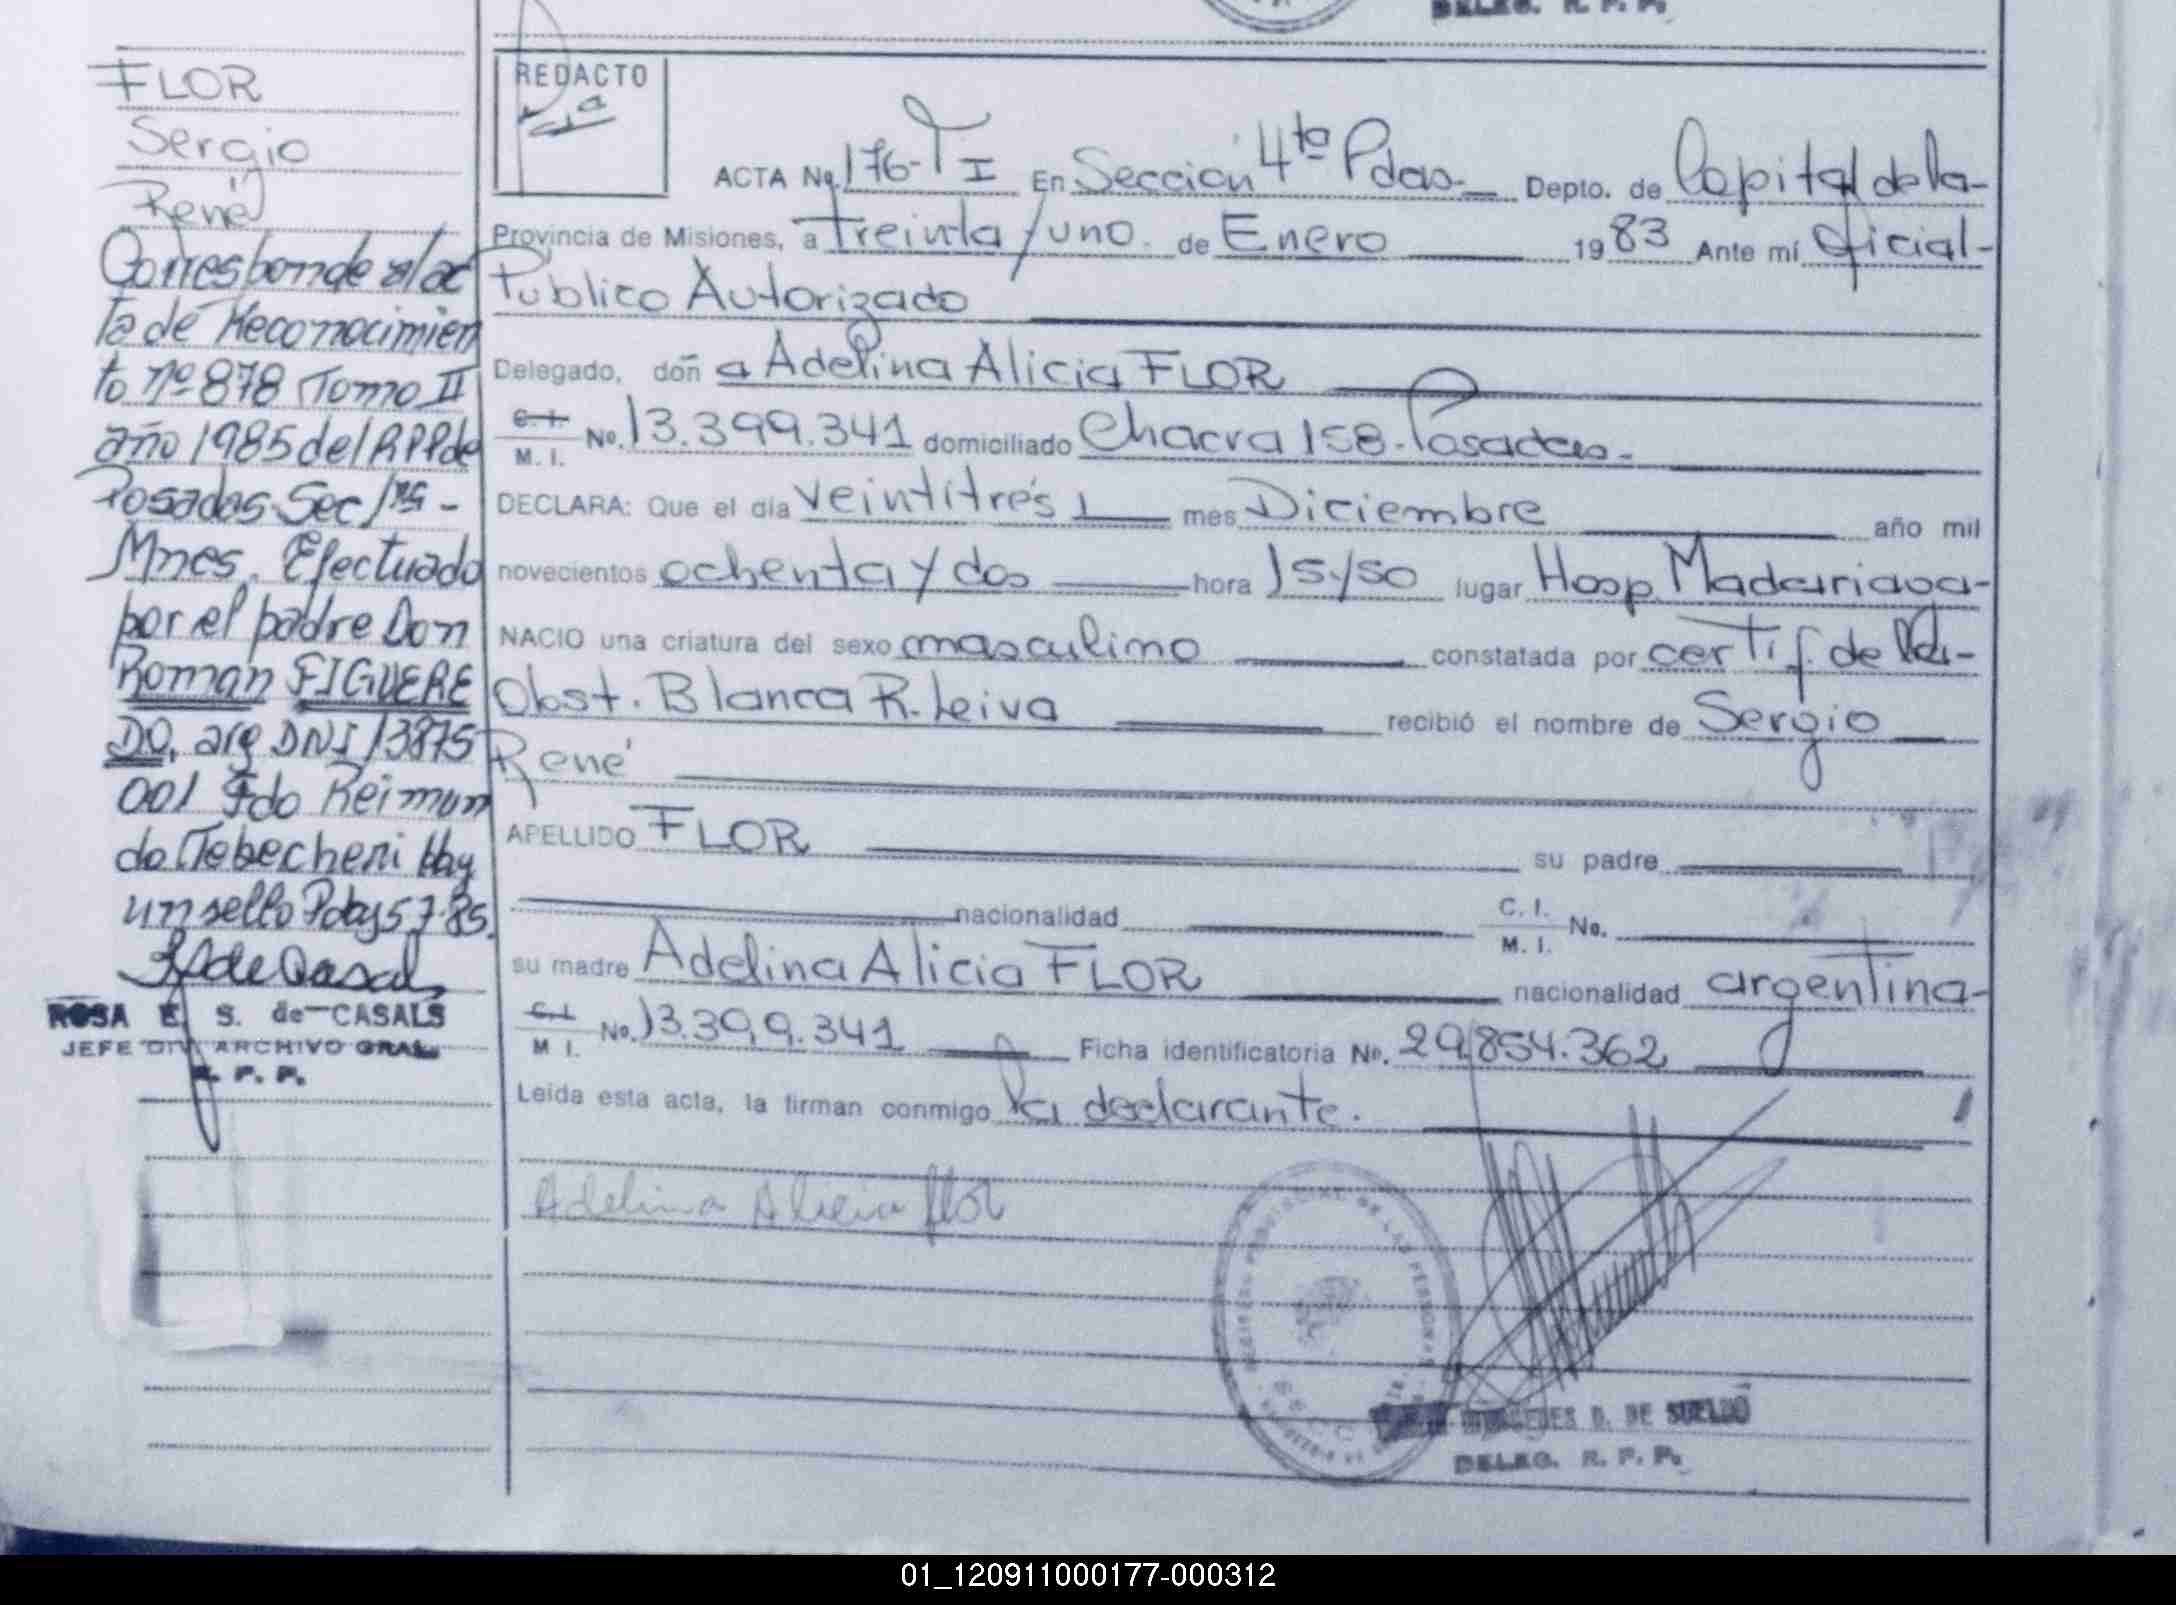 DELEG. R. P. P.
FLOR
Sergio
René
Corresponde al ac
ta de Reconocimien
to nº 878 Tomo II
año 1985 del RPP de
Posadas Sec 1ra -
Mnes. Efectuado
por el padre Don
Román FIGUERE
DO, arg DNI 13875
001 Fdo Reimun
do Tebecheri Hay
un sello Pdas 5.7.85.
ROSA E. S. de CASALS
JEFE DIV ARCHIVO GRAL.
R. P. P.
REDACTO
ACTA No. 176-T I En Sección 4ta Pdas. Depto. de Capital de la-
Provincia de Misiones, a treinta y uno. de Enero 1983 Ante mí Oficial-
Público Autorizado
Delegado, doña Adelina Alicia FLOR
C. I.
M. I. No. 13.399.341 domiciliado Chacra 158-Posadas-
DECLARA: Que el día veintitrés mes Diciembre año mil
novecientos ochenta y dos hora 15/50 lugar Hosp Madariaga-
NACIO una criatura del sexo masculino constatada por certif. de la-
Obst. Blanca R. Leiva recibió el nombre de Sergio
René
APELLIDO FLOR su padre
nacionalidad C. I. M. I. No.
su madre Adelina Alicia FLOR nacionalidad argentina-
C. I.
M I. No. 13.399.341 Ficha identificatoria No. 29.854.362
Leída esta acta, la firman conmigo la declarante.
Adelina Alicia flor
MERCEDES D. DE SUELDO
DELEG. R. P. P.
01_120911000177-000312